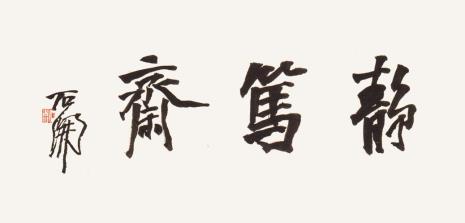 靜篤齋
石開